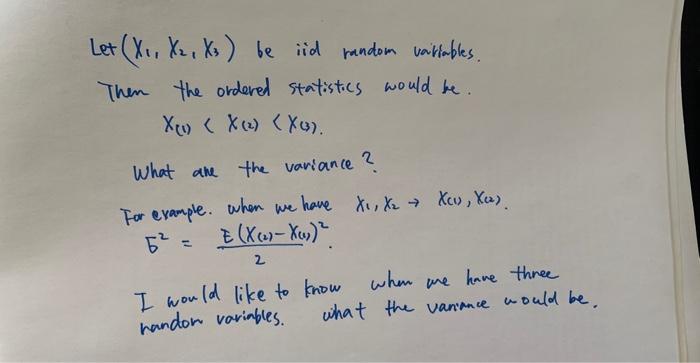 Let (X₁, X₂, X₃) be iid random variables.
Then the ordered statistics would be.
X(1) < X(2) < X(3).
What are the variance?
For example. when we have X₁, X₂ → X(1), X(2).
σ² = E(X(2)-X(1))² / 2.
I would like to know when we have three
random variables. what the variance would be.